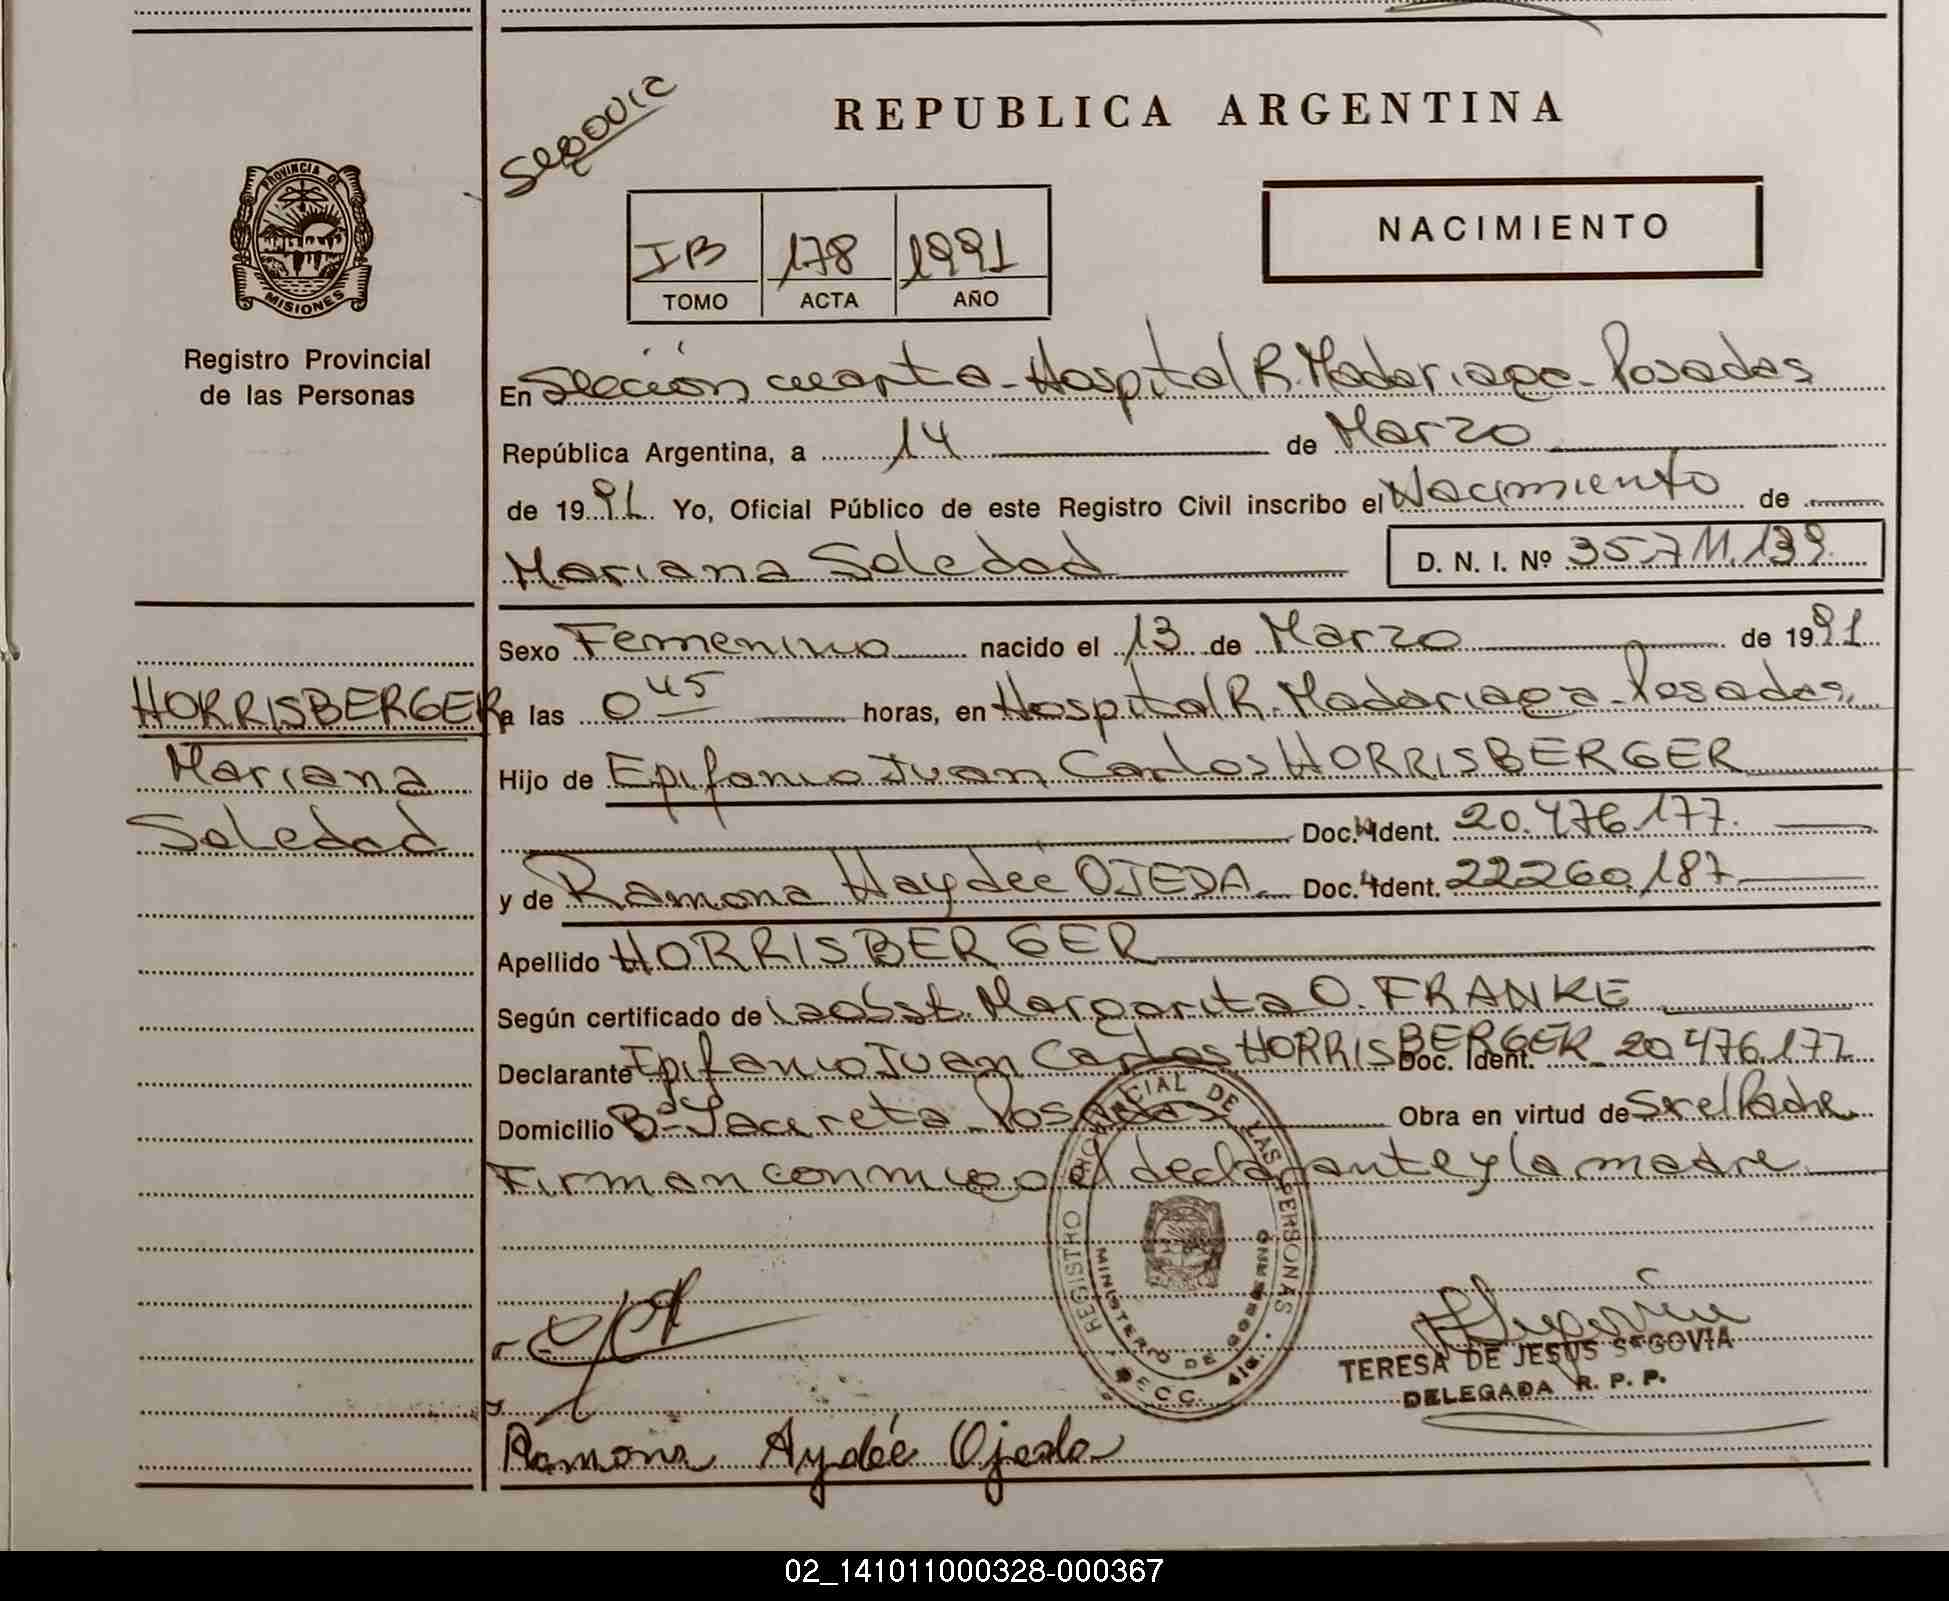 Segovia
REPUBLICA ARGENTINA
PROVINCIA DE
MISIONES
Registro Provincial
de las Personas
IB 178 1991
TOMO ACTA AÑO
NACIMIENTO
En Sección cuarta - Hospital R. Madariaga - Posadas
República Argentina, a 14 de Marzo
de 1991 Yo, Oficial Público de este Registro Civil inscribo el Nacimiento de
Mariana Soledad D. N. I. Nº 35.711.139.
Sexo Femenino nacido el 13 de Marzo de 1991
HORRISBERGER
Mariana
Soledad
a las 0 45 horas, en Hospital R. Madariaga - Posadas,
Hijo de Epifanio Juan Carlos HORRISBERGER
Doc. Ident. 20.476.177.
y de Ramona Haydeé OJEDA. Doc. Ident. 22260.187
Apellido HORRISBERGER
Según certificado de la obst. Margarita O. FRANKE
Declarante Epifanio Juan Carlos HORRISBERGER Doc. Ident. 20 476.177
Domicilio Bº Yacireta - Posadas Obra en virtud de Ser el Padre
Firman conmigo el declarante y la madre
REGISTRO PROVINCIAL DE LAS PERSONAS
MINISTERIO DE GOBIERNO
SECC. 4ta.
TERESA DE JESUS SEGOVIA
DELEGADA R. P. P.
Ramona Aydeé Ojeda
02_141011000328-000367